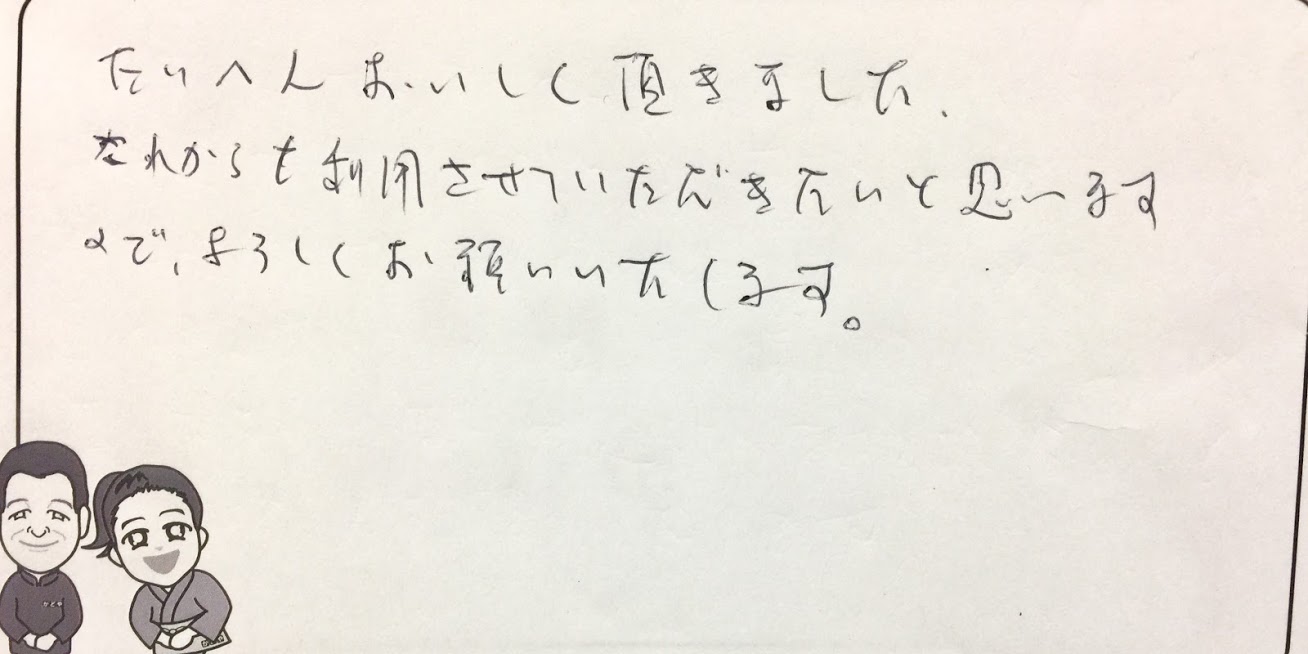 たいへんおいしく頂きました、
これからも利用させていただきたいと思います
ので、よろしくお願いいたします。
かどや